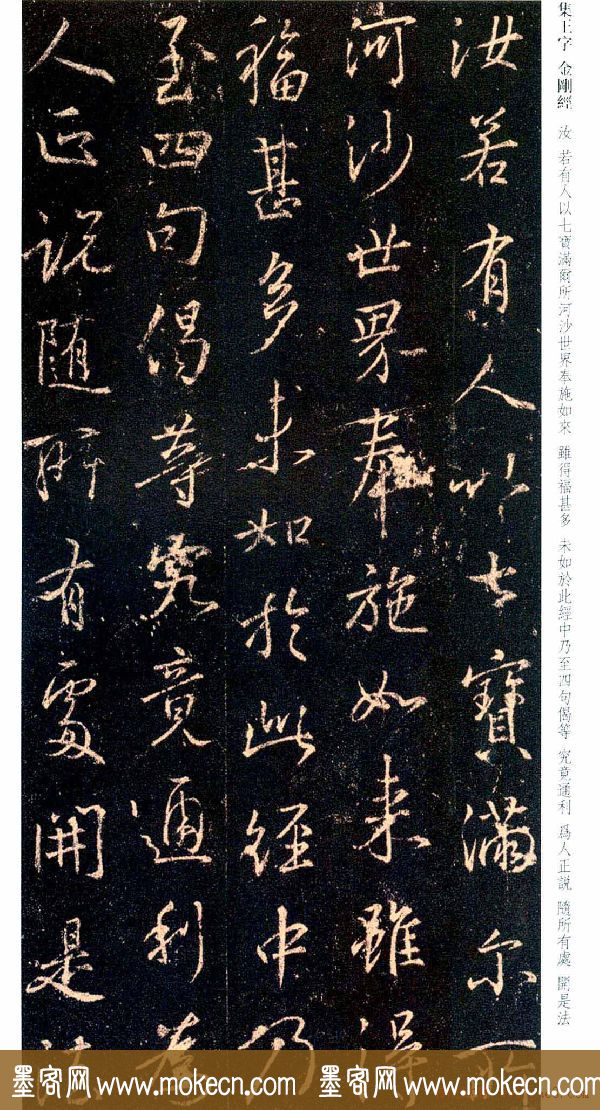 集王字 金剛經 汝 若有人以七寶滿爾所河沙世界奉施如來 雖得福甚多 未如於此經中乃至四句偈等 究竟通利 爲人正説 隨所有處 開是法
汝若有人以七寶滿尔所
河沙世界奉施如来雖得
福甚多未如於此経中乃
至四句偈等究竟通利為
人正説随所有處開是法
墨客网 www.mokecn.com 墨客网 www.mokecn.com